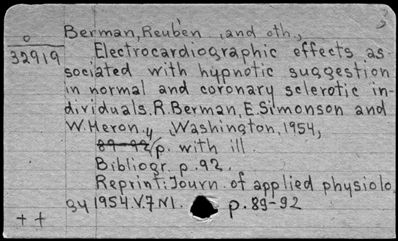 Berman, Reuben, and oth.,
0
32919
Electrocardiographic effects as-
sociated with hypnotic suggestion
in normal and coronary sclerotic in-
dividuals. R. Berman, E. Simonson and
W. Heron. Washington, 1954,
89-92 4 p. with ill.
Bibliogr. p. 92.
Reprint: Journ. of applied physiolo
gy 1954. V.7 N1. p. 89-92
++